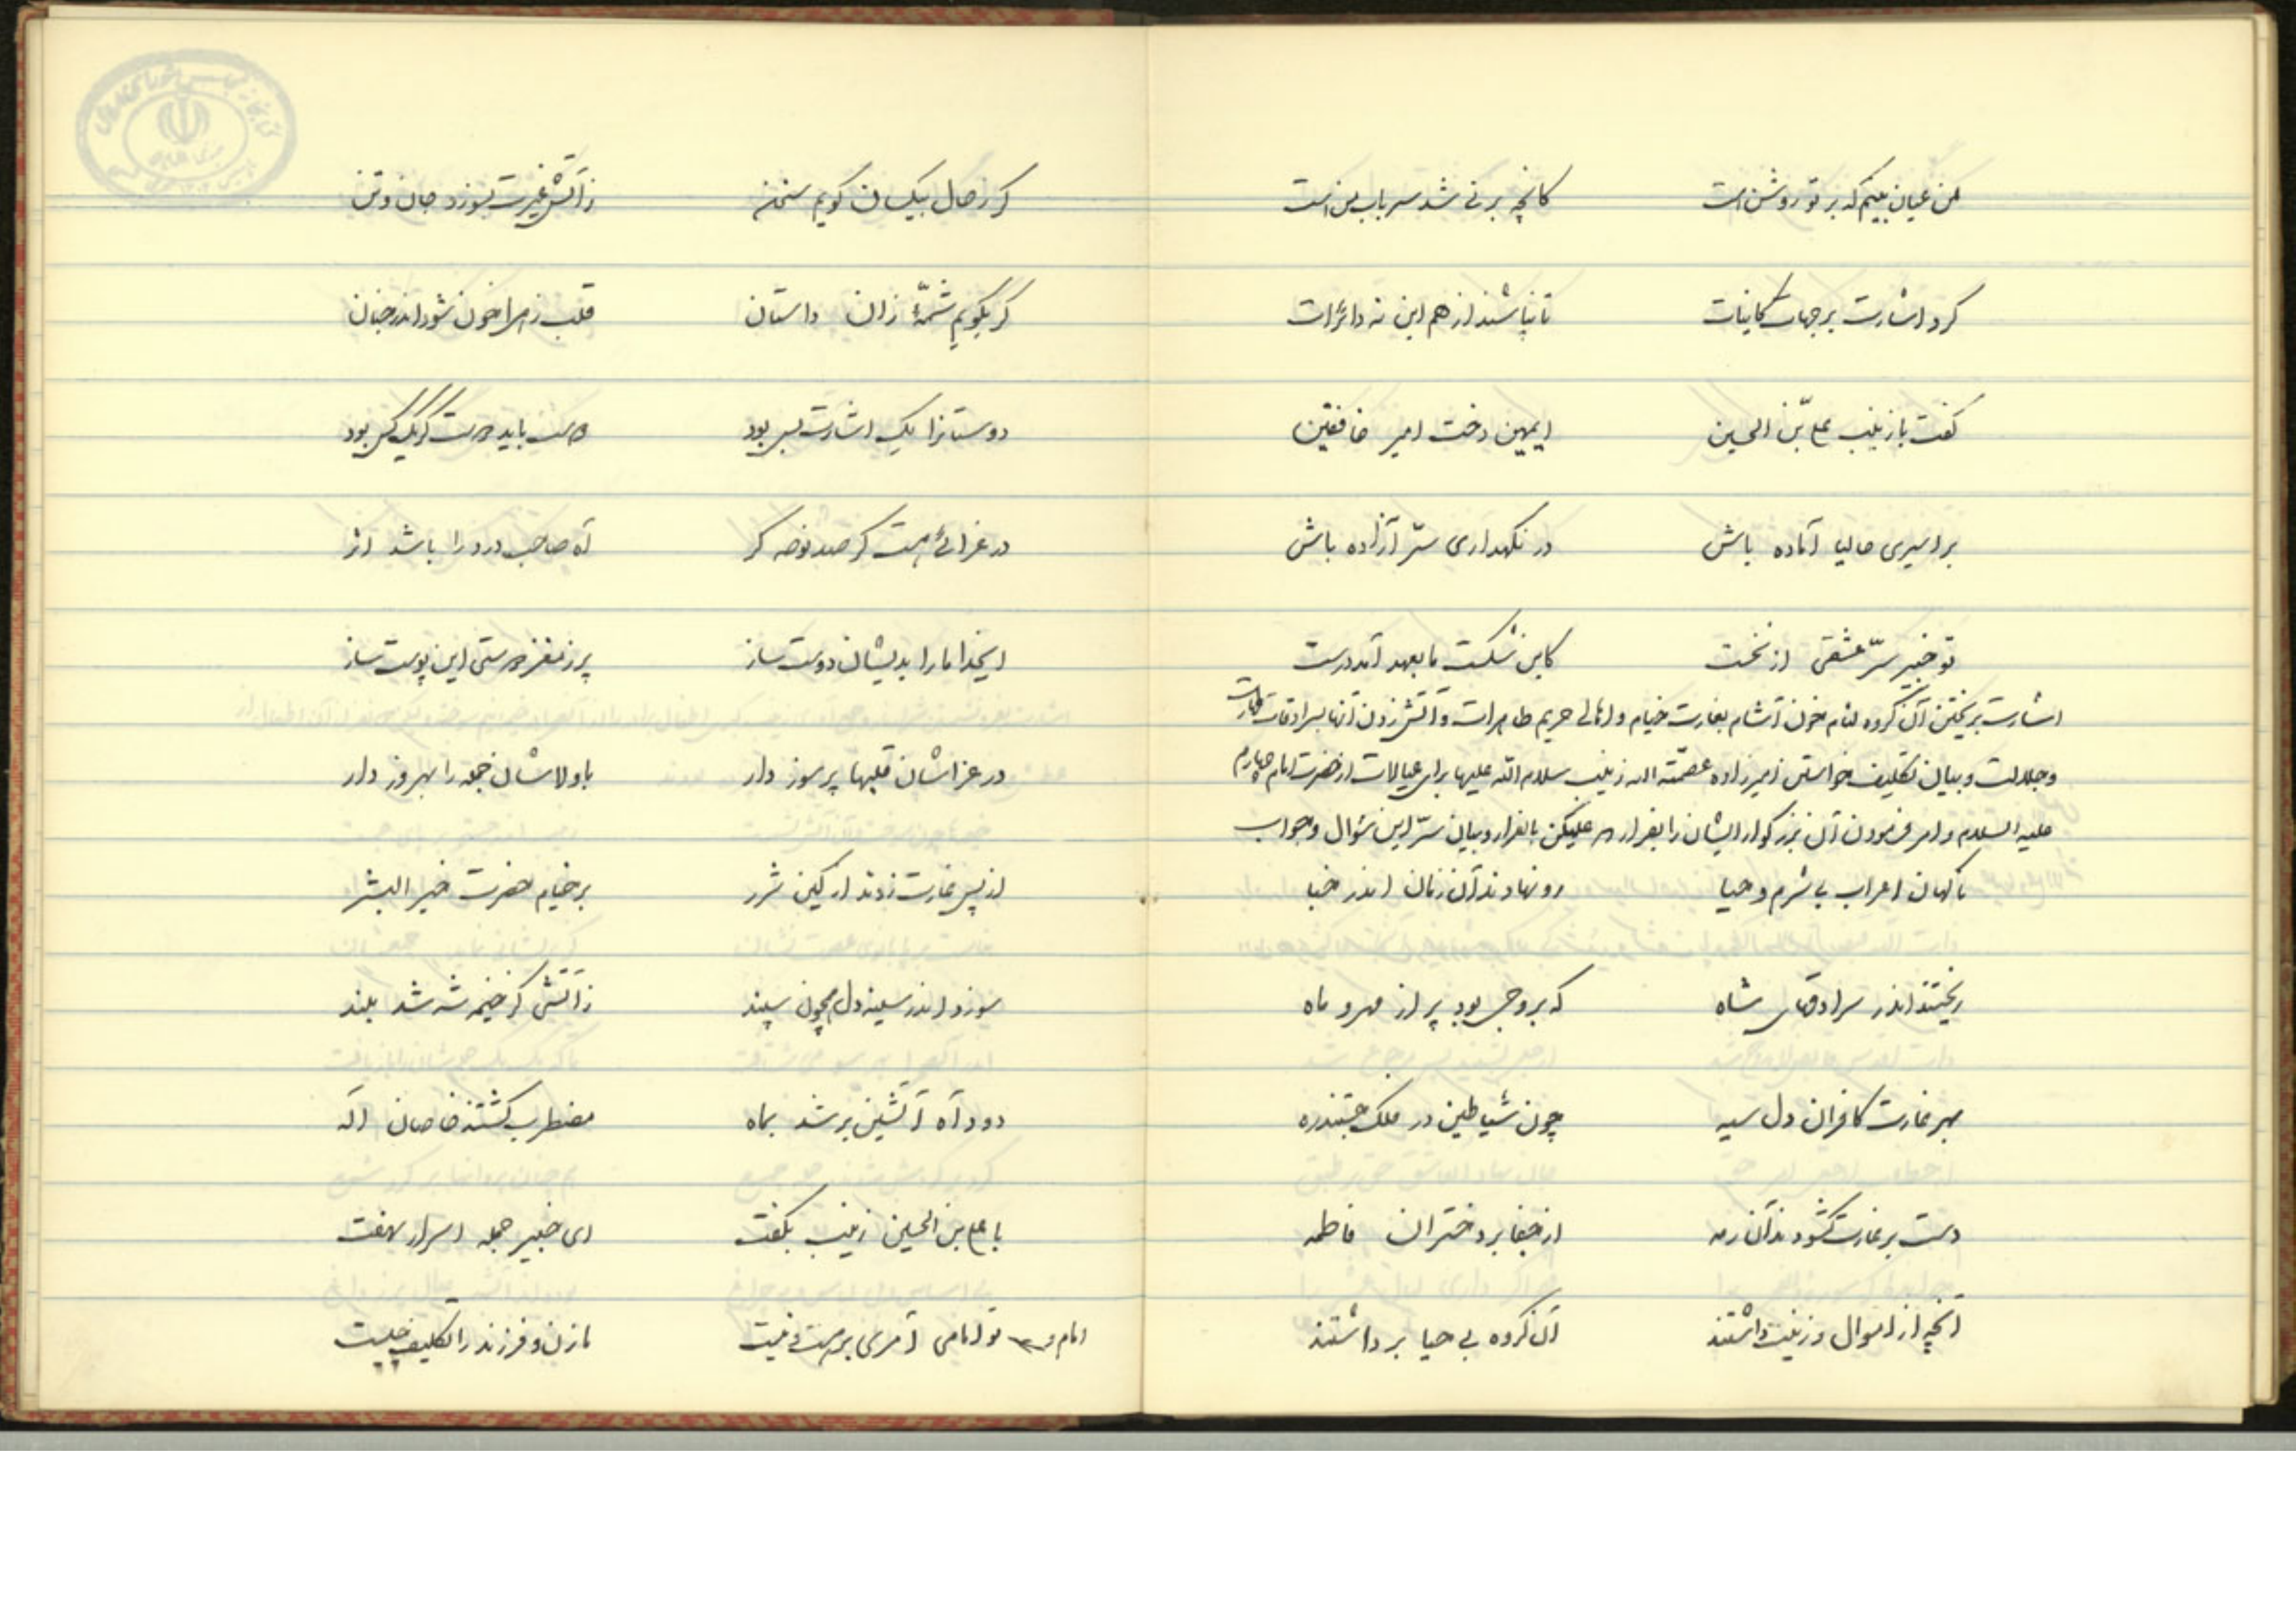 من عیان بینم که بر تو روشن است    کانچه بر نی شد سر باب من است
کرد اشارت بر جهات کاینات    تا نپاشند از هم این نه دائرات
گفت با زینب علی بن الحسین    ایمهین دخت امیر خافقین
بر اسیری حالیا آماده باش    در نگهداری سرّ آزاده باش
تو خبیر سرّ عشقی از نخست    کاین شکست ما بعهد آمد درست
اشارت بریختن آن گروه لئام خون آشام بغارت خیام و اهالی حریم طاهرات و آتش زدن آنها بسرادقات
وجلالت و بیان تکلیف خواستن امیرزاده عصمة الله زینب سلام الله علیها برای عیالات از حضرت امام چهارم
علیه السلام و امر فرمودن آن بزرگوار ایشان را بفرار علیکن بالفرار و بیان سرّ این سئوال و جواب
ناگهان اعراب بی شرم و حیا    رو نهادند آن زمان اندر خبا
ریختند اندر سرادقهای شاه    که بروجی بود پر از مهر و ماه
بهر غارت کافران دل سیه    چون شیاطین در ملک جستند ره
دست بر غارت گشودند آن رمه    از جفا بر دختران فاطمه
آنچه از اموال و زینت داشتند    آن گروه بی حیا برداشتند
گر ز حال بیکسان گویم سخن    ز آتش غیرت بسوزد جان و تن
گر بگویم شمّهٔ زان داستان    قلب زهرا خون شود اندر جنان
دوستانرا یک اشارت بس بود    دوست باید دوست گر یک کس بود
در عزائی هست گر صد نوحه گر    آه صاحب درد را باشد اثر
ایخدا ما را بدیشان دوست ساز    پر ز مغز دوستی این پوست ساز
در عزاشان قلبها پر سوز دار    با ولاشان جمله را بهروز دار
از پس غارت زدند از کین شرر    بر خیام حضرت خیر البشر
سوزد اندر سینه دل همچون سپند    ز آتشی کز خیمه شه شد بلند
دود آه آتشین بر شد بماه    مضطرب گشتند خاصان اله
با علی بن الحسین زینب بگفت    ای خبیر جمله اسرار نهفت
تو امامی آمری بر هست و نیست    ما زن و فرزند را تکلیف چیست